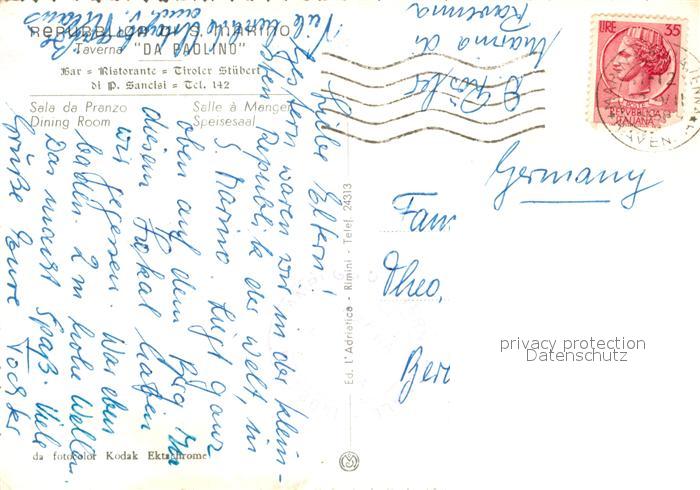 REPUBBLICA DI S. MARINO
Taverna "DA PAOLINO"
Bar - Ristorante - Tiroler Stüberl
di P. Sancisi - Tel. 142
Sala da Pranzo Salle à Manger
Dining Room Speisesaal
Liebe Eltern!
Gestern waren wir in der klein-
sten Republik der Welt, in
S. Marino. Liegt ganz
oben auf dem Berg. In
diesem Lokal haben
wir gegessen. War eben
baden. 2 m hohe Wellen.
Das macht Spaß. Viele
Grüße Eure Tochter
Viele
Marina di
Ravenna
LIRE 35
REPUBBLICA
ITALIANA
Germany
Fam
Theo,
Ber
Ed. l'Adriatica - Rimini - Telef. 24313
da fotocolor Kodak Ektachrome
privacy protection
Datenschutz